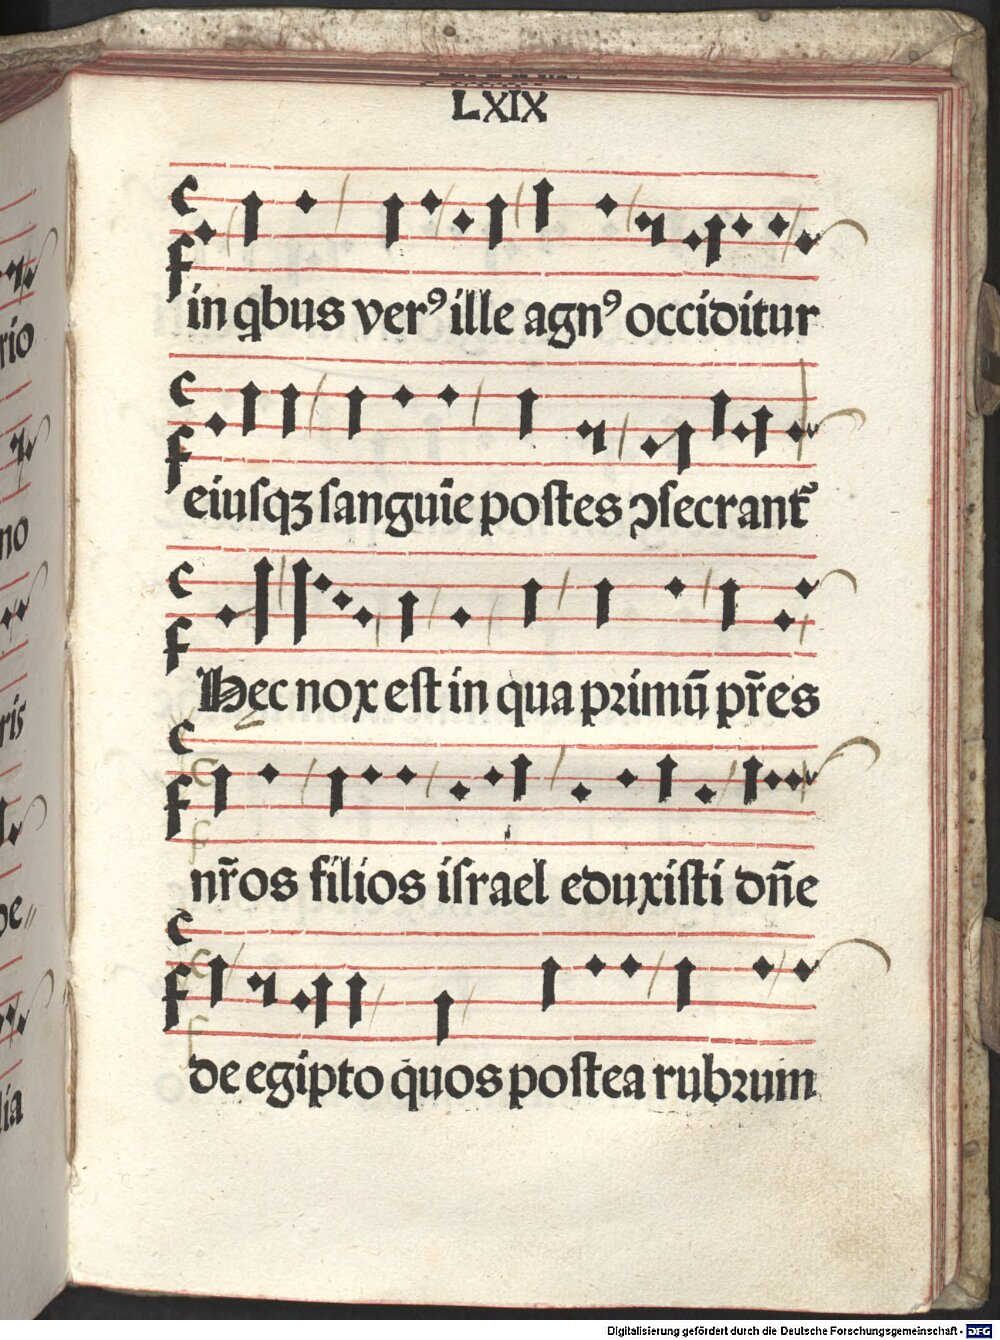 LXIX
in qbus verꝰ ille agnꝰ occiditur
eiuſqꝫ ſanguīe poſtes ꝯſecrant᷑
Hęc nox eſt in qua primū pr̄es
nr̄os filios iſrael eduxiſti dn̄e
de egipto quos poſtea rubrum
rio
no
ris
be
lia
Digitalisierung gefördert durch die Deutsche Forschungsgemeinschaft - DFG